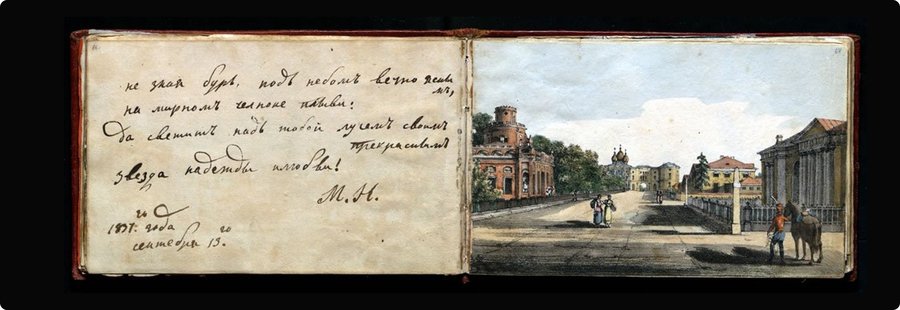 не зная бурь, подъ небомъ вечно яснымъ,
на мирномъ челноке плыви:
Да светитъ надъ тобой лучемъ своимъ
прекраснымъ
звезда надежды и любви!
М. Н.
1837. го года
сентября 13. го